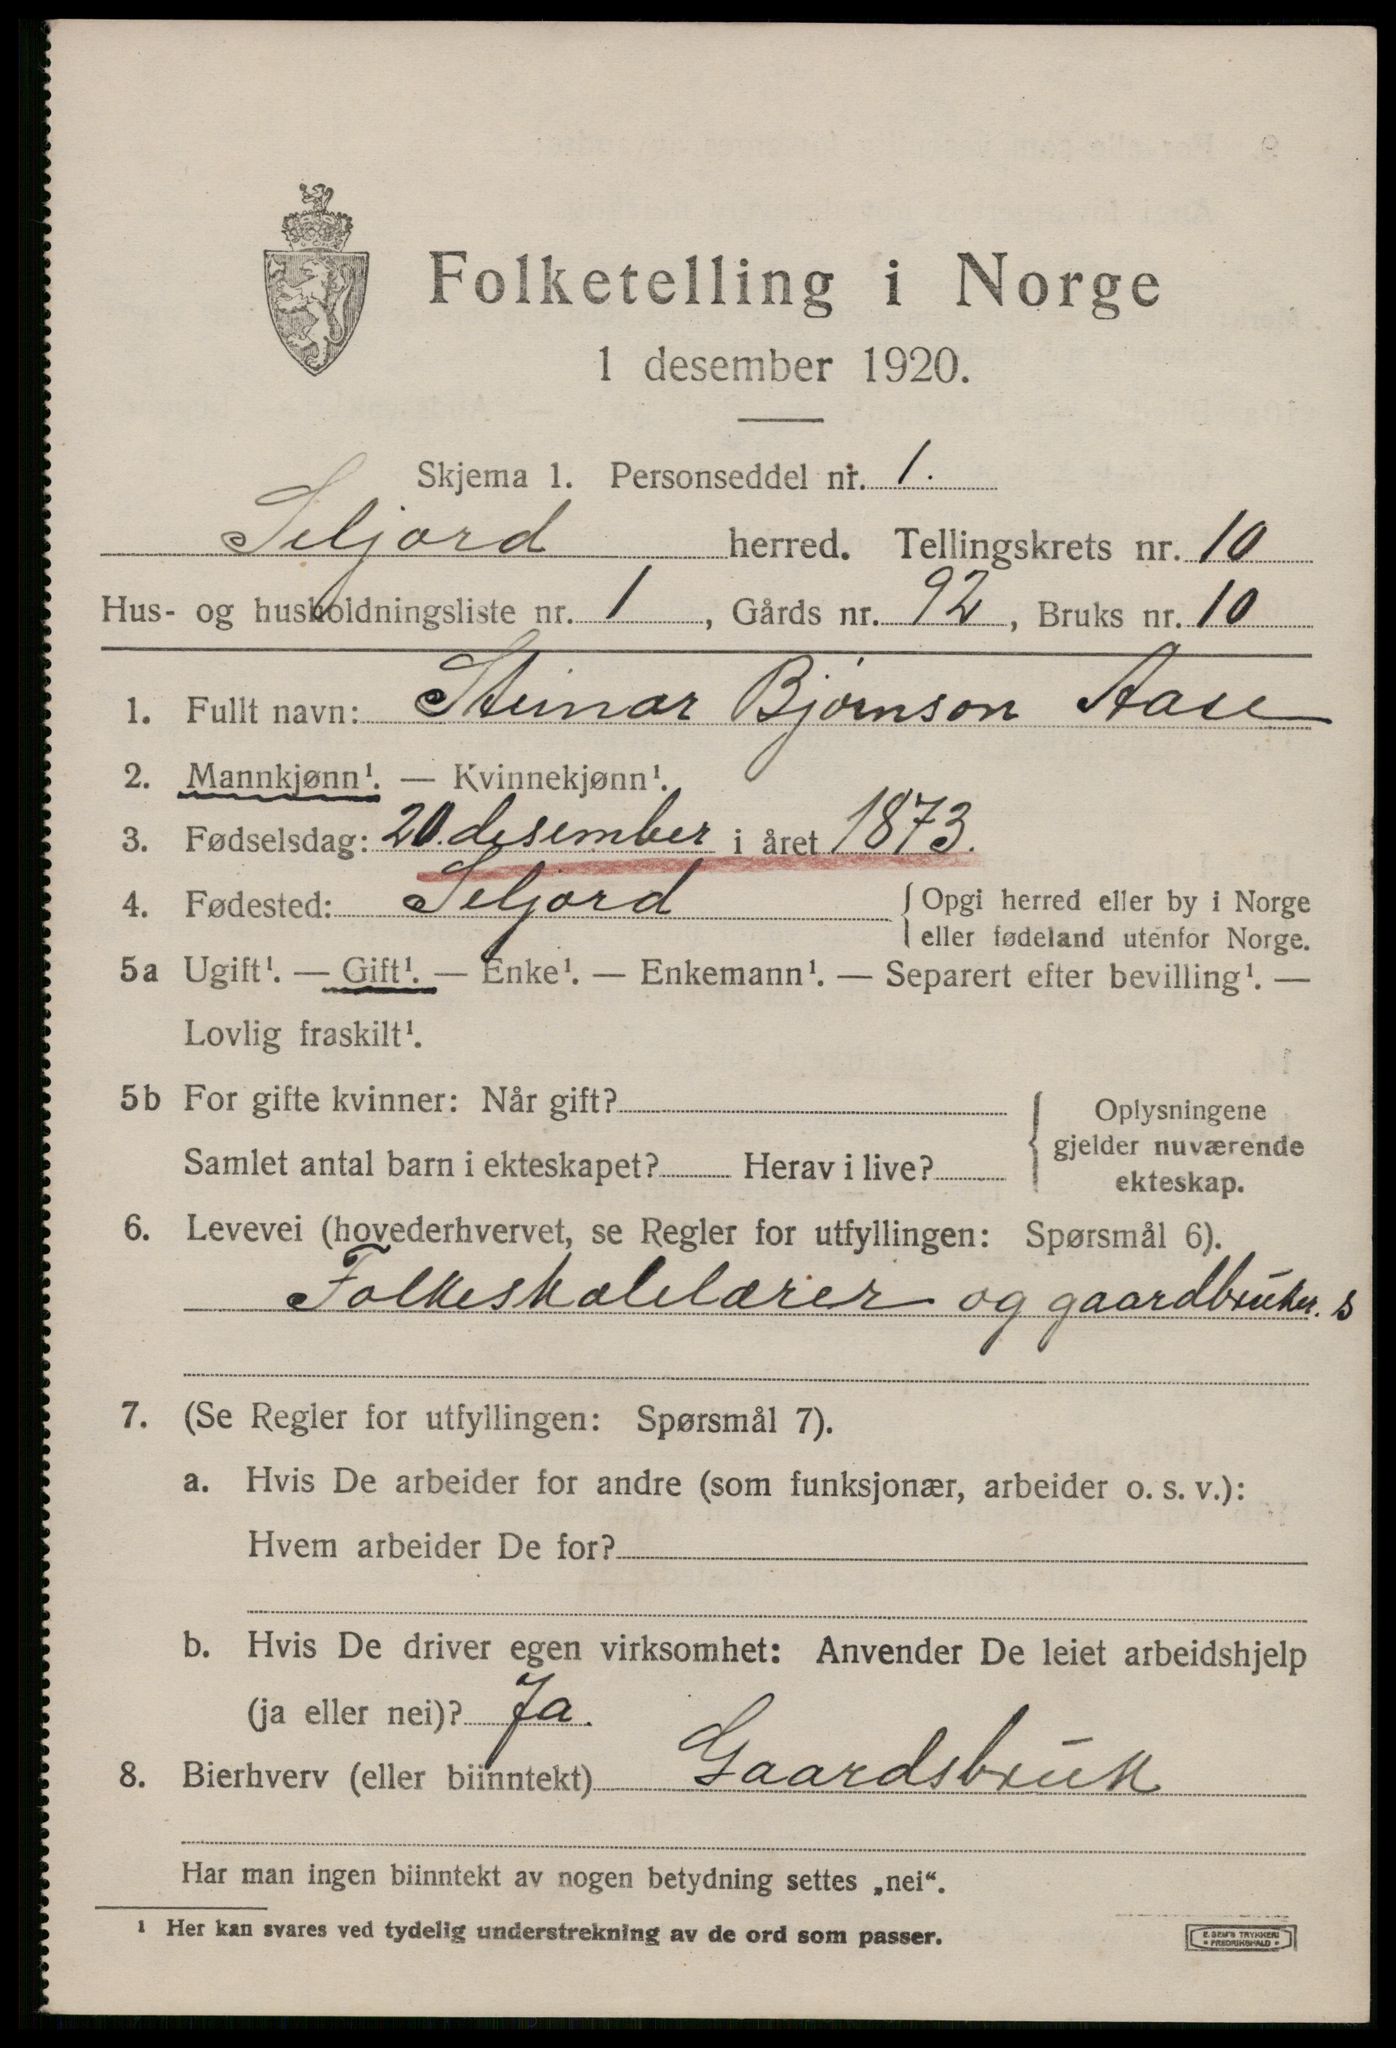 Folketelling i Norge
1 desember 1920.
Skjema 1. Personseddel nr. 1.
Seljord herred. Tellingskrets nr. 10
Hus- og husholdningsliste nr. 1, Gårds nr. 92, Bruks nr. 10
1. Fullt navn: Steinar Bjørnson Aase
2. Mannkjønn¹. — Kvinnekjønn¹.
3. Fødselsdag: 20. desember i året 1873.
4. Fødested: Seljord { Opgi herred eller by i Norge
eller fødeland utenfor Norge.
5a Ugift¹. — Gift¹. — Enke¹. — Enkemann¹. — Separert efter bevilling¹. —
Lovlig fraskilt¹.
5b For gifte kvinner: Når gift? { Oplysningene
gjelder nuværende
Samlet antal barn i ekteskapet? Herav i live?
ekteskap.
6. Levevei (hovederhvervet, se Regler for utfyllingen: Spørsmål 6).
Folkeskolelærer og gaardbruker. s
7. (Se Regler for utfyllingen: Spørsmål 7).
a. Hvis De arbeider for andre (som funksjonær, arbeider o. s. v.):
Hvem arbeider De for?
b. Hvis De driver egen virksomhet: Anvender De leiet arbeidshjelp
(ja eller nei)? Ja.
8. Bierhverv (eller biinntekt) Gaardsbruk
Har man ingen biinntekt av nogen betydning settes „nei“.
¹ Her kan svares ved tydelig understrekning av de ord som passer.
E. SEM'S TRYKKERI
• FREDRIKSHALD •